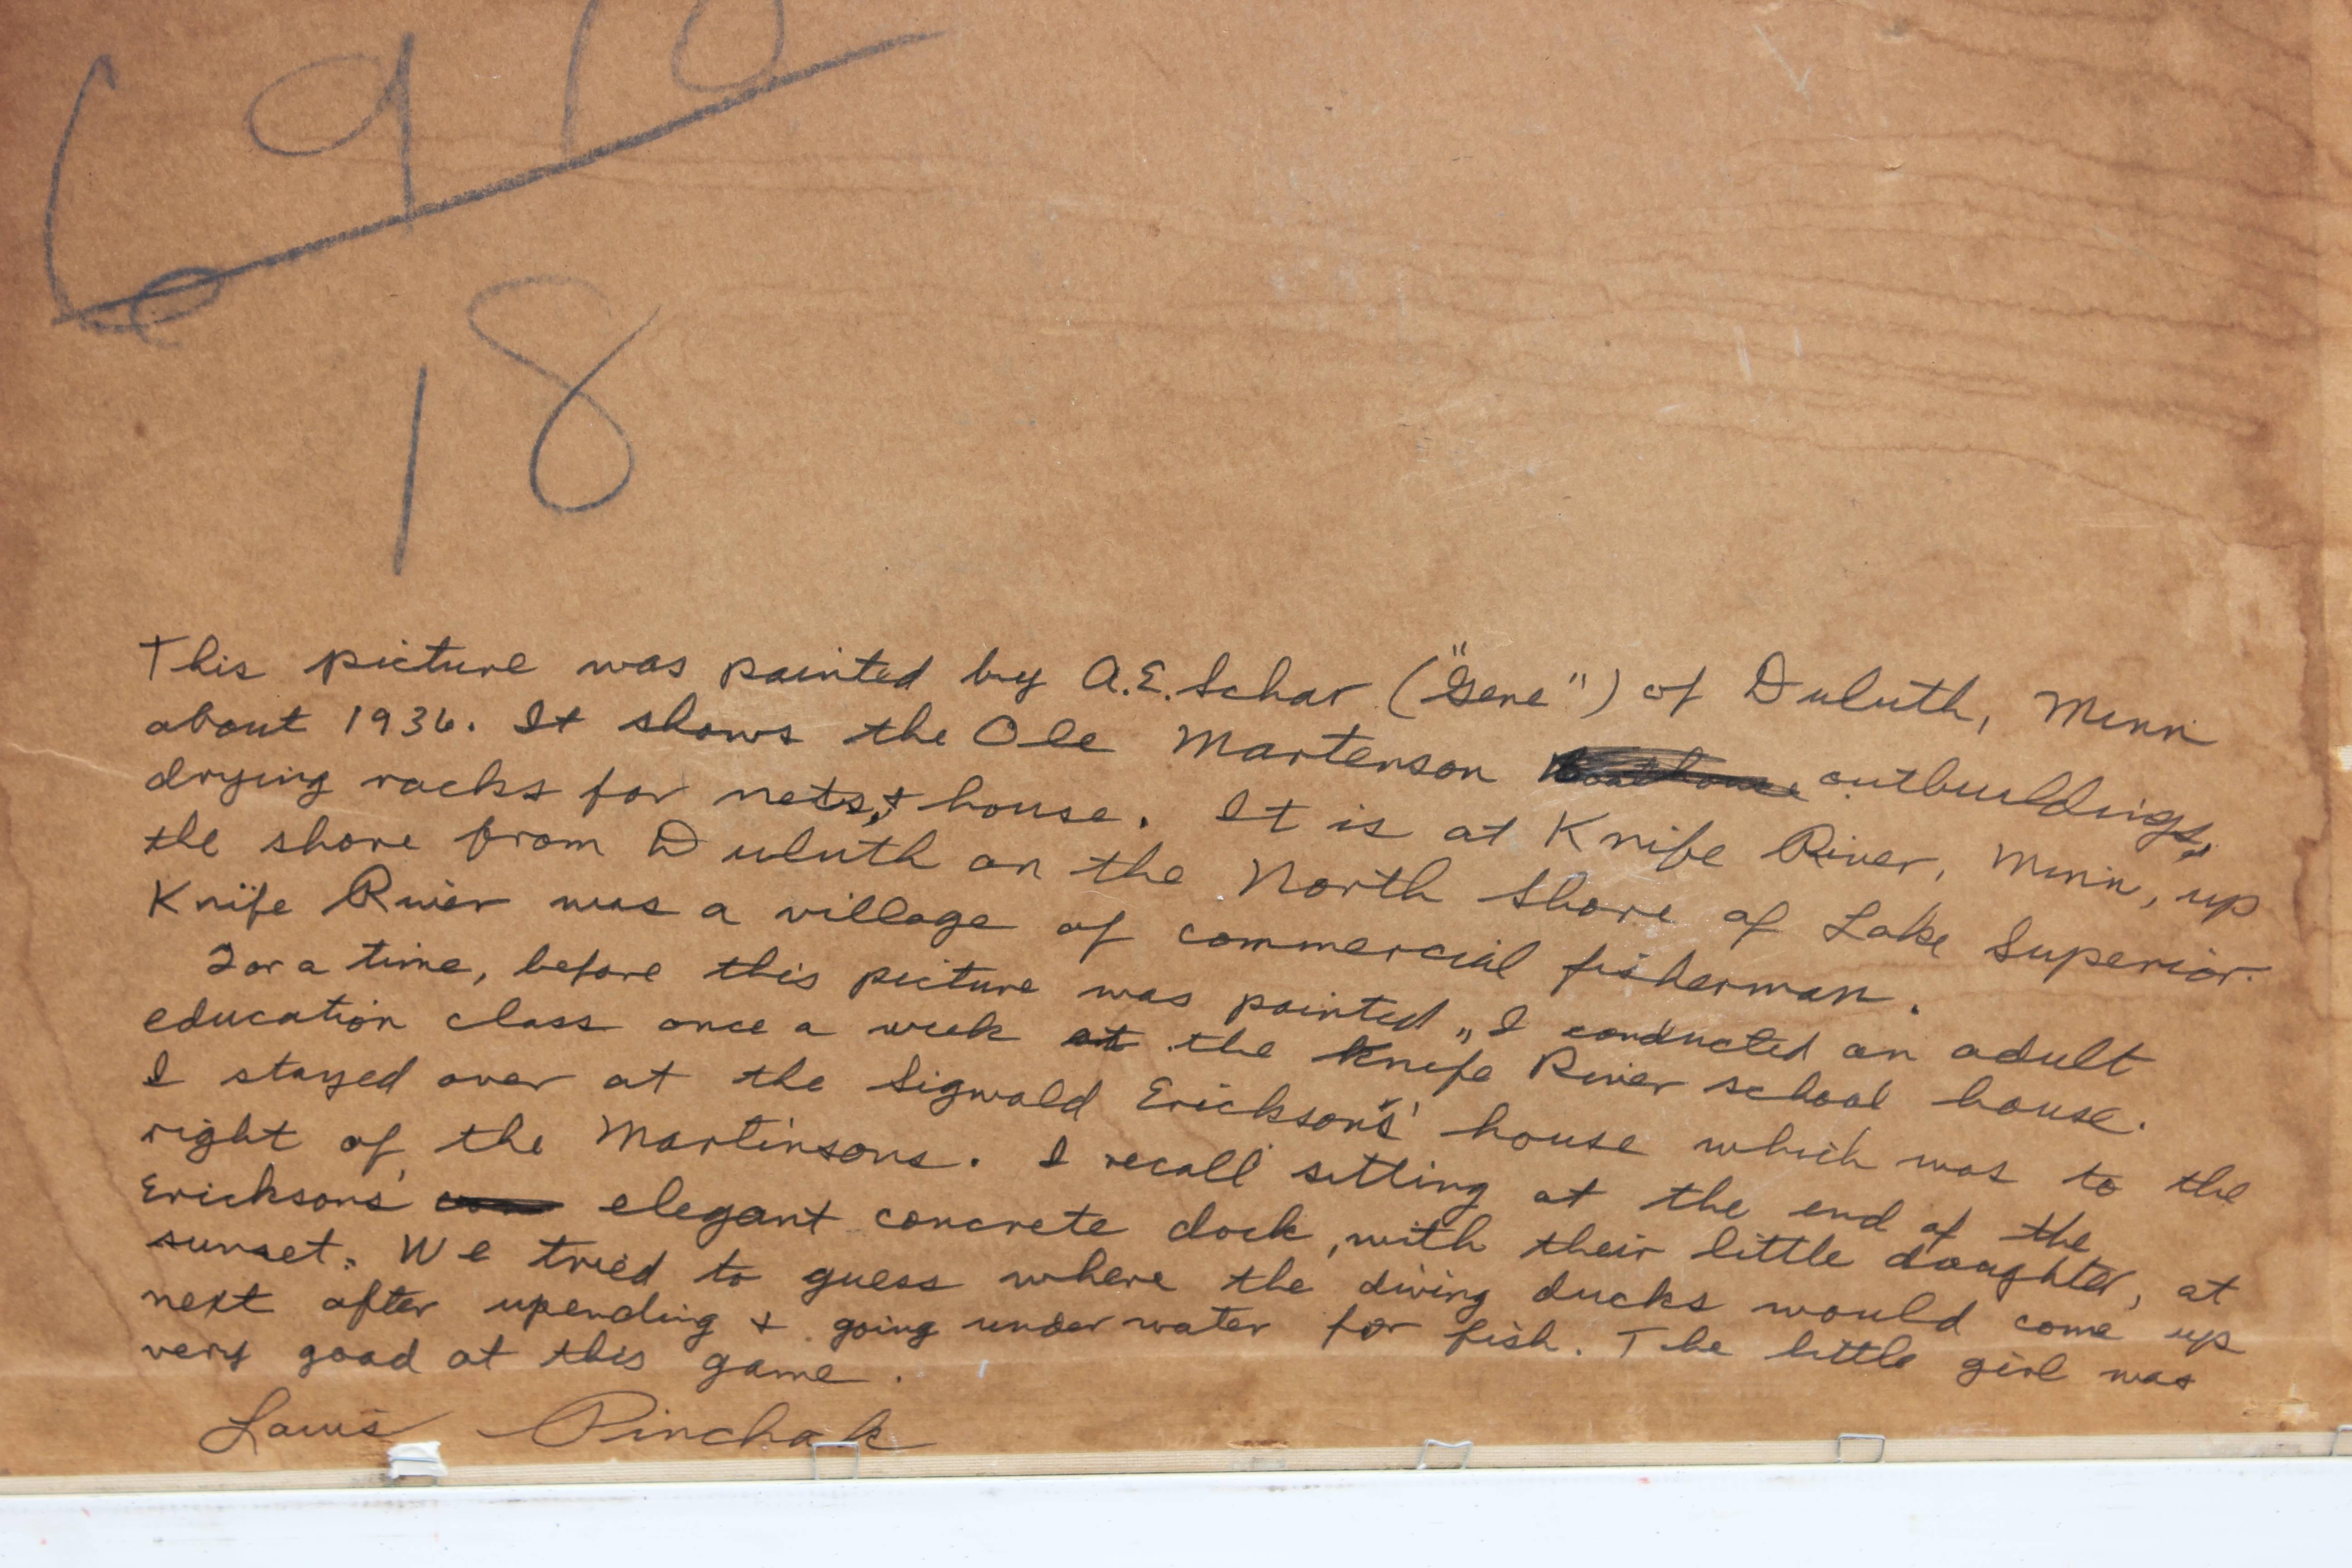 6910
18
This picture was painted by A.E. Schar ("Gene") of Duluth, Minn
about 1936. It shows the Ole Martenson outbuildings,
drying racks for nets, + house. It is at Knife River, Minn, up
the shore from Duluth on the North Shore of Lake Superior.
Knife River was a village of commercial fisherman.
For a time, before this picture was painted, I conducted an adult
education class once a week at the Knife River school house.
I stayed over at the Sigwald Ericksons' house which was to the
right of the Martinsons. I recall sitting at the end of the
Ericksons' elegant concrete dock, with their little daughter, at
sunset. We tried to guess where the diving ducks would come up
next after upending + going under water for fish. The little girl was
very good at this game.
Louis Pinchak